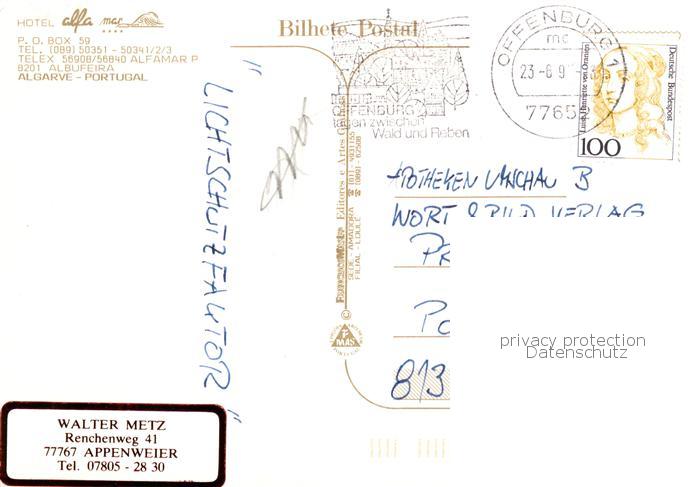 HOTEL alfa mar
P. O. BOX 59
TEL. (089) 50351 - 50341/2/3
TELEX 56908/56840 ALFAMAR P
8201 ALBUFEIRA
ALGARVE - PORTUGAL
Bilhete Postal
OFFENBURG
tagen zwischen
Wald und Reben
OFFENBURG 1
mc
23-8.9
7765
Deutsche Bundespost
Luise Henriette von Oranien
100
"LICHTSCHUTZFAKTOR"
Editores e Artes
SEDE - AMADORA
FILIAL - LOULÉ
APOTHEKEN UMSCHAU B
WORT & BILD VERLAG
813
privacy protection
Datenschutz
WALTER METZ
Renchenweg 41
77767 APPENWEIER
Tel. 07805 - 28 30